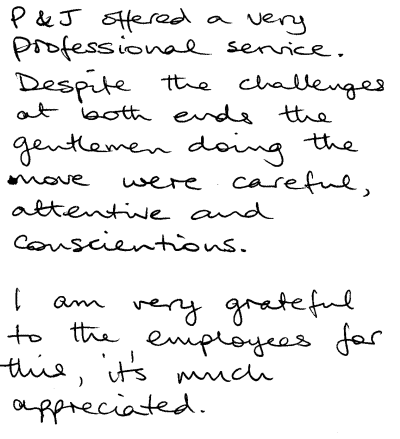 P & J offered a very
professional service.
Despite the challenges
at both ends the
gentlemen doing the
move were careful,
attentive and
conscientious.
I am very grateful
to the employees for
this, it's much
appreciated.